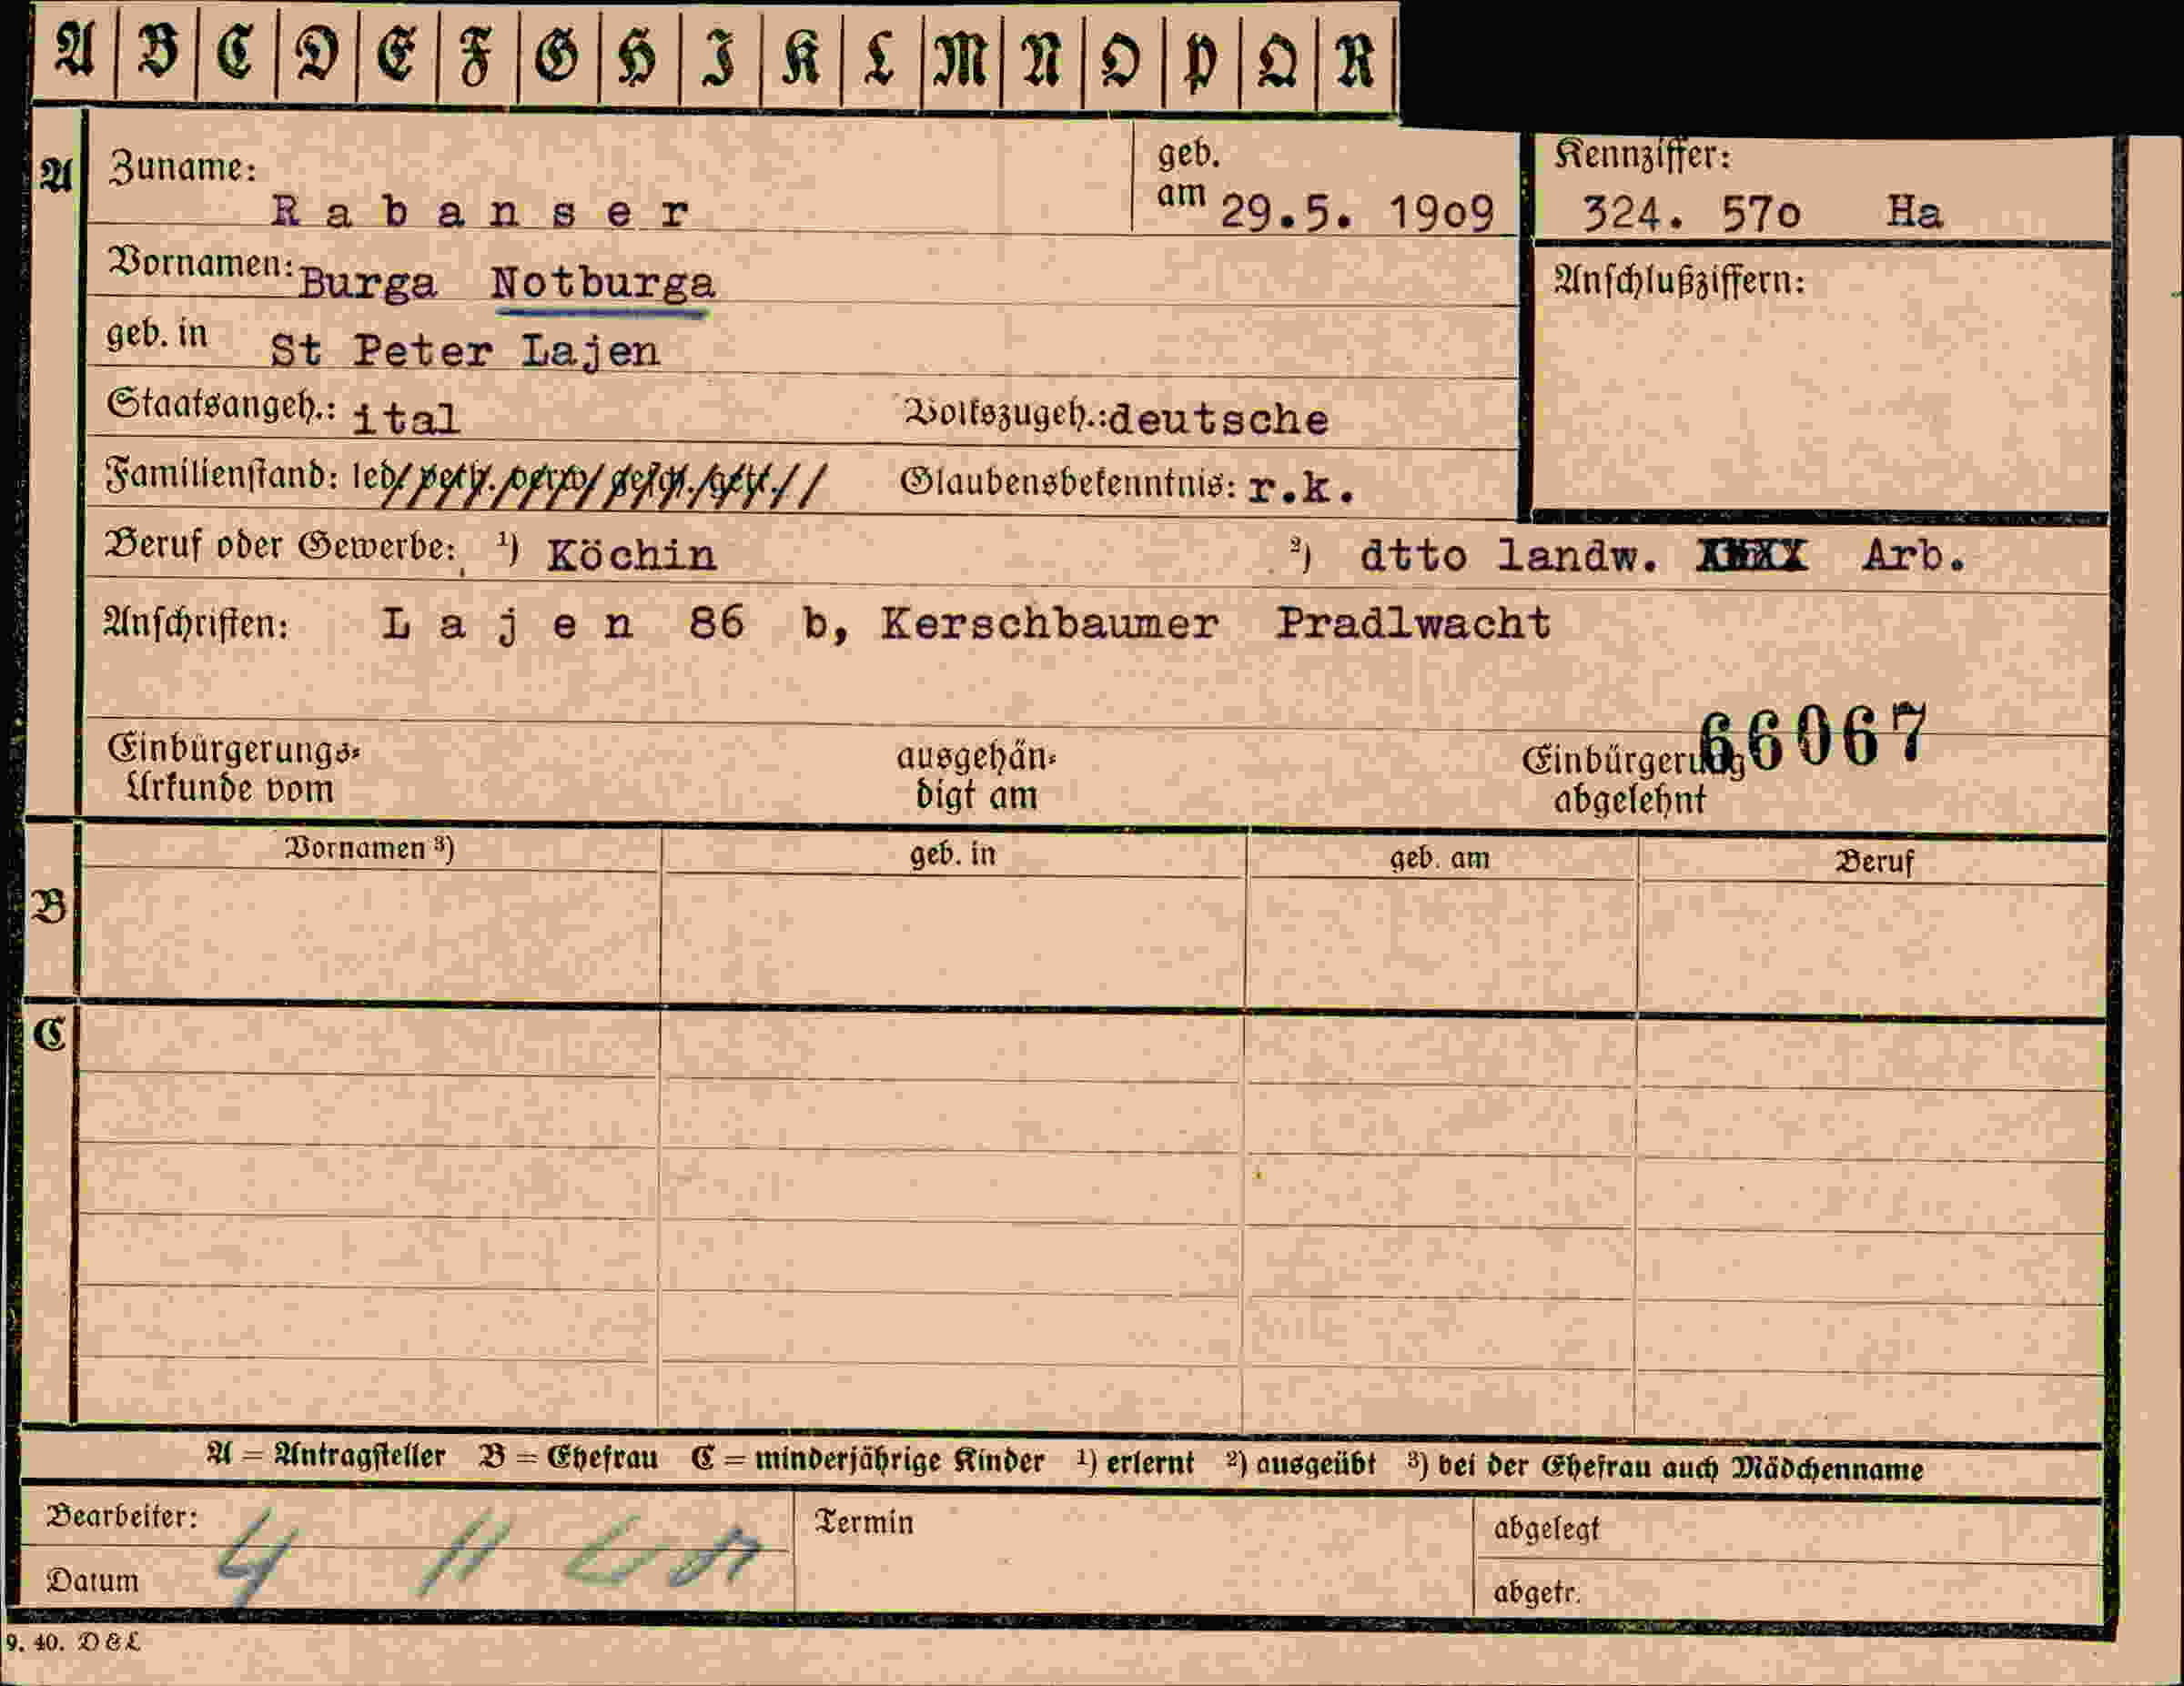 A B C D E F G H I K L M N O P Q R
A Zuname: R a b a n s e r geb. am 29.5. 1909 Kennziffer: 324. 570 Ha
Vornamen: Burga Notburga Anschlußziffern:
geb. in St Peter Lajen
Staatsangeh.: ital Volkszugeh.: deutsche
Familienstand: led/ verh. verw/ gesch. getr. // Glaubensbekenntnis: r.k.
Beruf oder Gewerbe: 1) Köchin 2) dtto landw. Arb.
Anschriften: L a j e n 86 b, Kerschbaumer Pradlwacht
66067
Einbürgerungs= ausgehän= Einbürgerung
Urkunde vom digt am abgelehnt
Vornamen 3) geb. in geb. am Beruf
B
C
A = Antragsteller B = Ehefrau C = minderjährige Kinder 1) erlernt 2) ausgeübt 3) bei der Ehefrau auch Mädchenname
Bearbeiter: Termin abgelegt
Datum abgetr.
9. 40. D & L